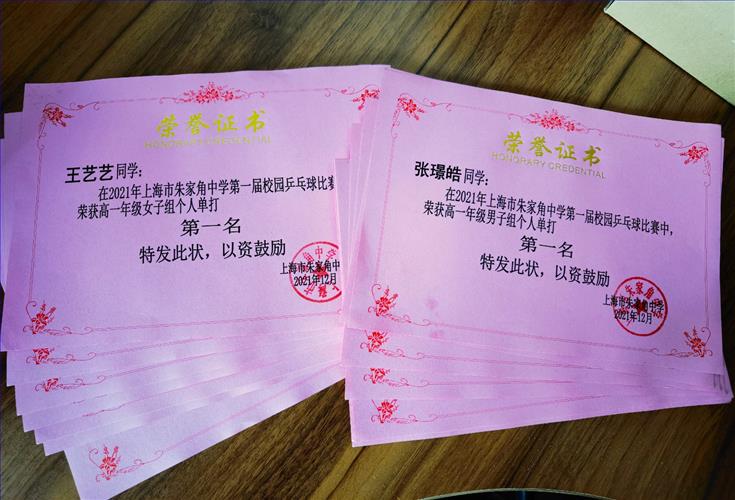 荣誉证书
HONORARY CREDENTIAL
王艺艺同学：
在2021年上海市朱家角中学第一届校园乒乓球比赛
荣获高一年级女子组个人单打
第一名
特发此状，以资鼓励
上海市朱家角中
2021年12月
荣誉证书
HONORARY CREDENTIAL
张璟皓同学：
在2021年上海市朱家角中学第一届校园乒乓球比赛中，
荣获高一年级男子组个人单打
第一名
特发此状，以资鼓励
上海市朱家角中学
2021年12月